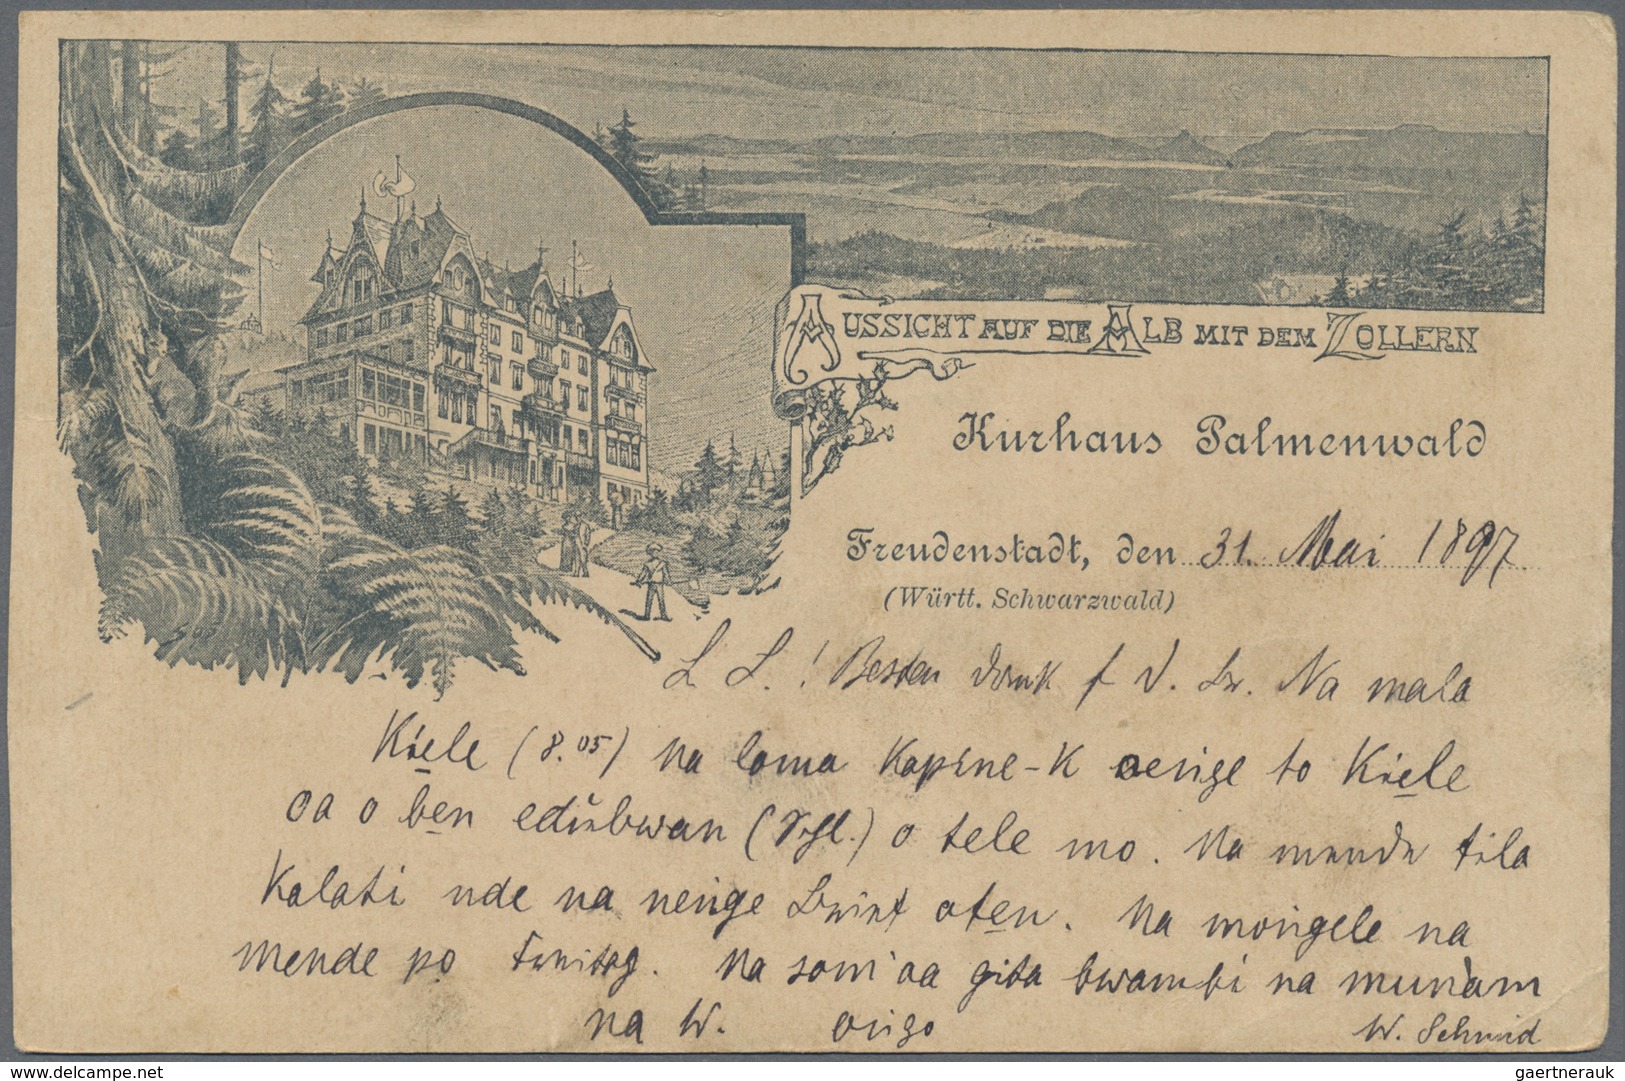 AUSSICHT AUF DIE ALB MIT DEM ZOLLERN
Kurhaus Palmenwald
Freudenstadt, den 31. Mai 1897
(Württ. Schwarzwald)
L L.! Besten Dank f D. Br. Na mala
Kiele (8.05) na loma Kapine-K nenge to Kiele
oa o ben edubwan o tele mo. Na mende tila
Kalati nde na nenge Brief oten. Na mongele na
mende po. Na som'oa gita bwambi na munam
na W. W. Schmid
delcampe.net
gaertnerauk